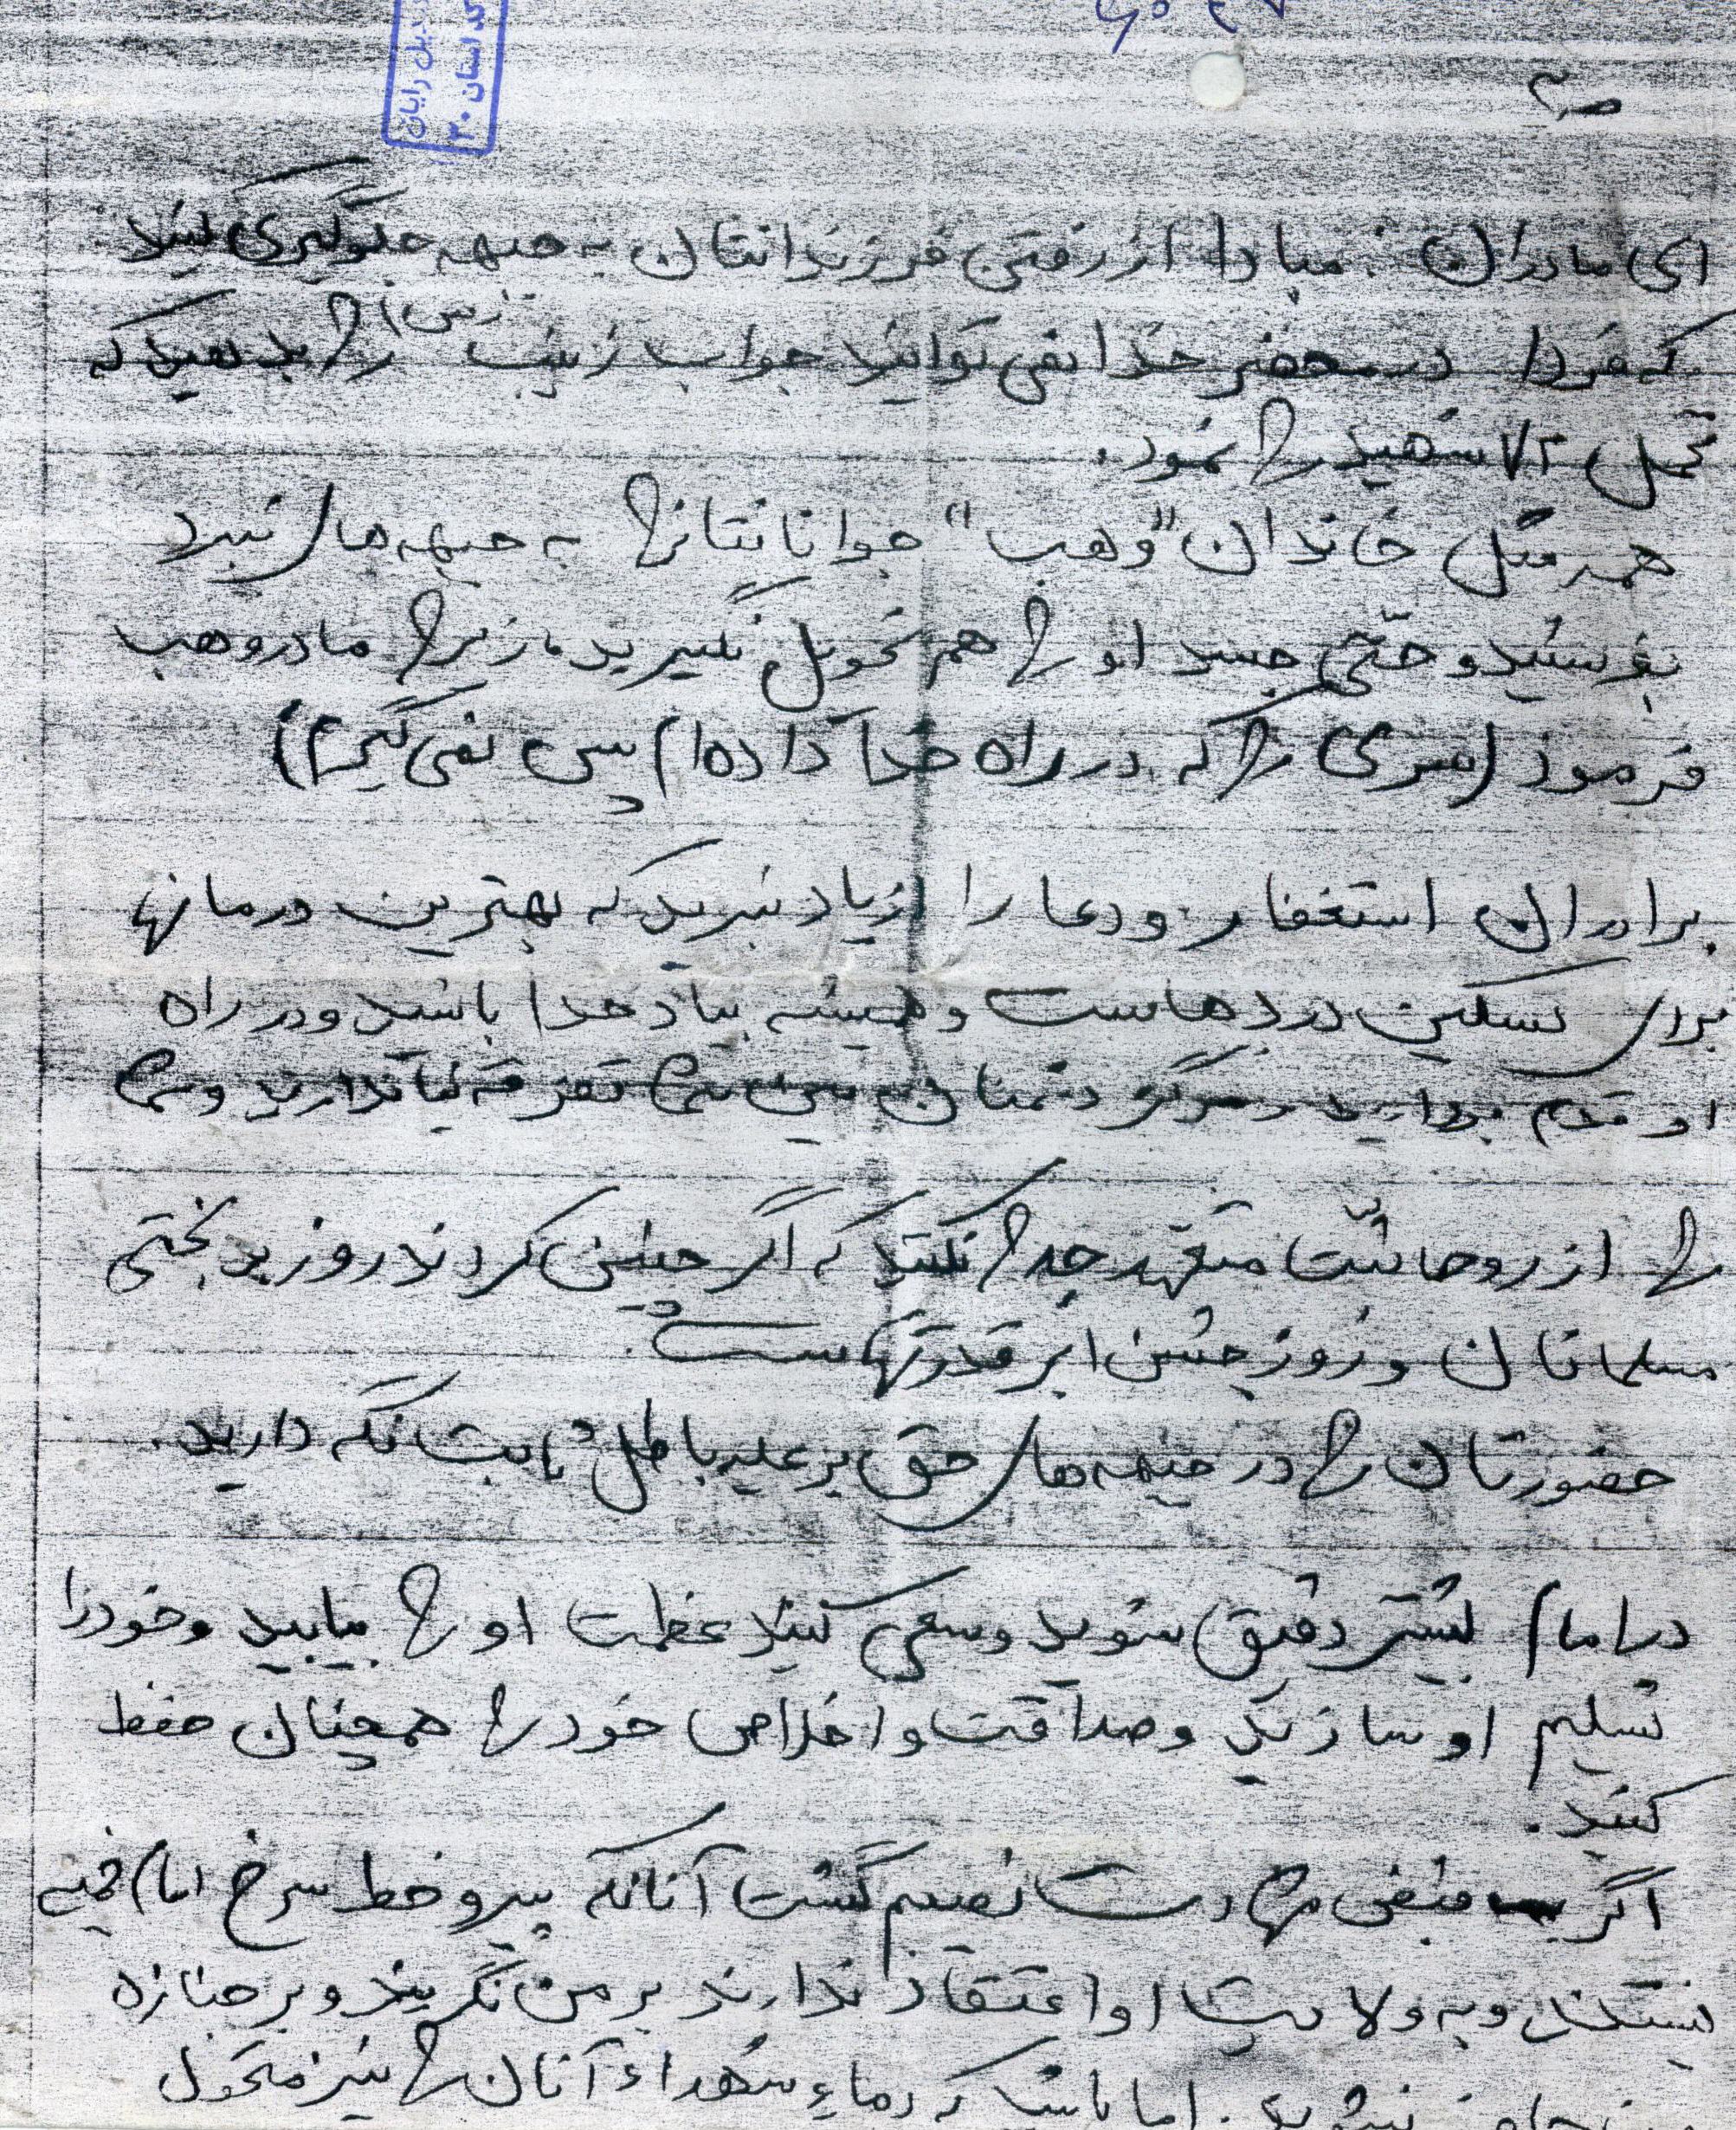 کد استان ۳۰
ص۲
ای مادران: مبادا از رفتن فرزندانتان به جبهه جلوگیری کنید
که فردا در محضر خدا نمی توانید جواب زینب (س) را بدهید که
تحمل ۷۲ شهید را نمود.
همه مثل خاندان "وهب" جوانانتانرا به جبهه های نبرد
بفرستید و حتّی جسد او را هم تحویل نگیرید، زیرا مادر وهب
فرمود (سری را که در راه خدا داده ام پس نمی گیرم)
برادران استغفار و دعا را از یاد نبرید که بهترین درمانها
برای تسکین دردهاست و همیشه بیاد خدا باشید و در راه
او قدم بردارید و هرگز دشمنان بین شما تفرقه نیاندازند و شما
را از روحانیّت متعهد جدا نکنند که اگر چنین کردند روز بدبختی
مسلمانان و روز جشن ابرقدرتهاست.
حضورتان را در جبهه های حق بر علیه باطل ثابت نگه دارید.
در امام بیشتر دقیق شوید و سعی کنید عظمت او را بیابید و خود را
تسلیم او سازید و صداقت و اخلاص خود را همچنان حفظ
کنید.
اگر فیض شهادت نصیبم گشت آنانکه پیرو خط سرخ امام خمینی
نیستند و به ولایت او اعتقاد ندارند بر من نگریند و بر جنازه
من حاضر نشوند. اما باشد که دماء شهداء آنان را نیز متحول